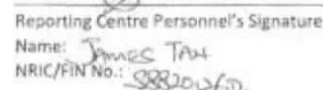 Reporting Centre Personnel's Signature
Name: James TAN
NRIC/FIN No.: